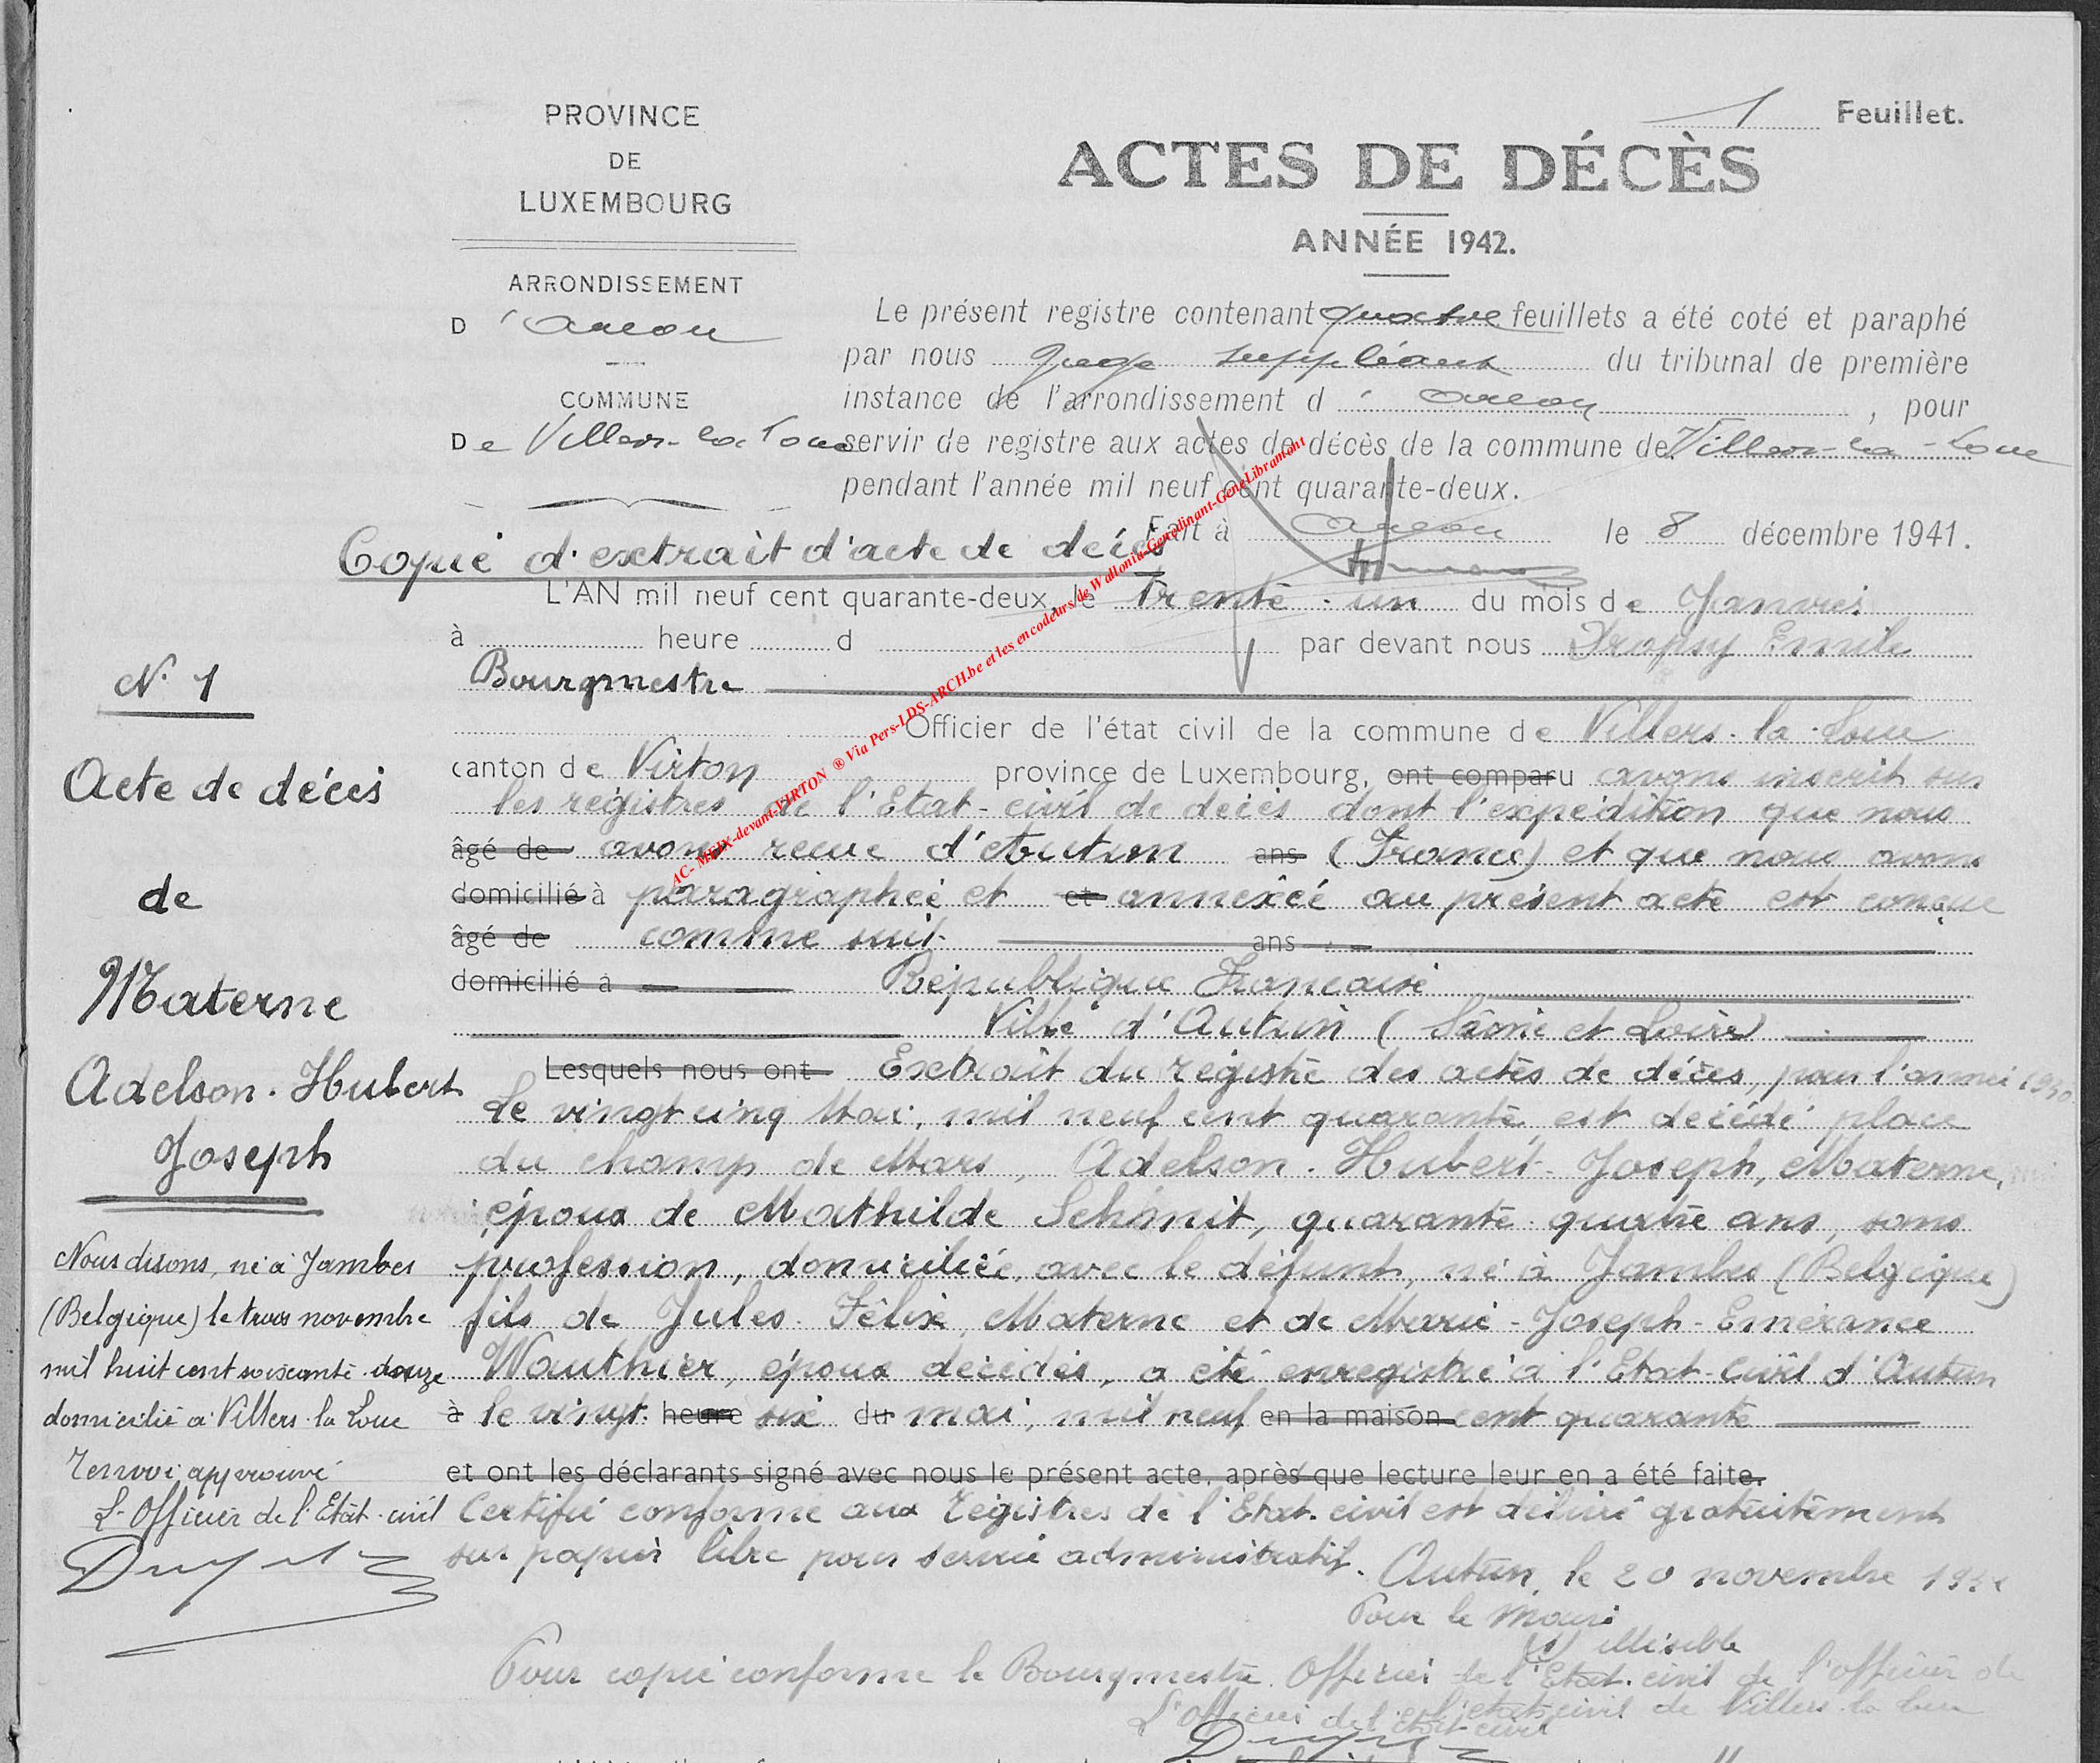 PROVINCE
DE
LUXEMBOURG
ARRONDISSEMENT
D 'Arlon
COMMUNE
De Villers-la-Loue
1 Feuillet.
ACTES DE DÉCÈS
ANNÉE 1942.
Le présent registre contenant quatre feuillets a été coté et paraphé
par nous Juge suppléant du tribunal de première
instance de l'arrondissement d 'Arlon, pour
servir de registre aux actes de décès de la commune de Villers-la-Loue
pendant l'année mil neuf cent quarante-deux.
Fait à Arlon le 8 décembre 1941.
Copie d'extrait d'acte de décès
L'AN mil neuf cent quarante-deux, le trente-un du mois de Janvier
à heure d par devant nous Dropsy Emile
Bourgmestre
Officier de l'état civil de la commune de Villers-la-Loue
canton de Virton province de Luxembourg, ont comparu avons inscrit sur
les registres de l'Etat-civil de décès dont l'expédition que nous
âgé de avons recue d'Autun ans (France) et que nous avons
domicilié à paragraphée et et annexée au présent acte est concue
âgé de comme suit. ans
domicilié à République Francaise
Ville d'Autun (Saône et Loire)
Lesquels nous ont Extrait du registre des actes de décès, pour l'année 1940.
Le vingt cinq Mai, mil neuf cent quarante, est décédé place
du champ de Mars, Adelson-Hubert-Joseph, Materne,
époux de Mathilde Schmit, quarante-quatre ans, sans
profession, domiciliée, avec le défunt, né à Jambes (Belgique)
fils de Jules-Félix, Materne et de Marie-Joseph-Emérance
Wauthier, époux décédés, a été enregistré à l'Etat-Civil d'Autun
à le vingt heure six du mai, mil neuf en la maison cent quarante
et ont les déclarants signé avec nous le présent acte, après que lecture leur en a été faite.
Certifié conforme aux registres de l'Etat-civil est délivré gratuitement
sur papier libre pour service administratif.
Autun, le 20 novembre
Pour le Maire
(s) illisible
Pour copie conforme le Bourgmestre Officier de l'Etat-civil de l'officier de
l'état civil de Villers-la-Loue
L'Officier de l'état civil
N. 1
Acte de décès
de
Materne
Adelson-Hubert
Joseph
Nous disons, né à Jambes
(Belgique) le trois novembre
mil huit cent soixante-douze
domicilié à Villers-la-Loue
Renvoi approuvé
L'Officier de l'Etat-civil
AC-MEIX-devant-VIRTON ® Via Pers-LDS-ARCH.be et les encodeurs de Wallonia-Genedinant-GeneLibramont